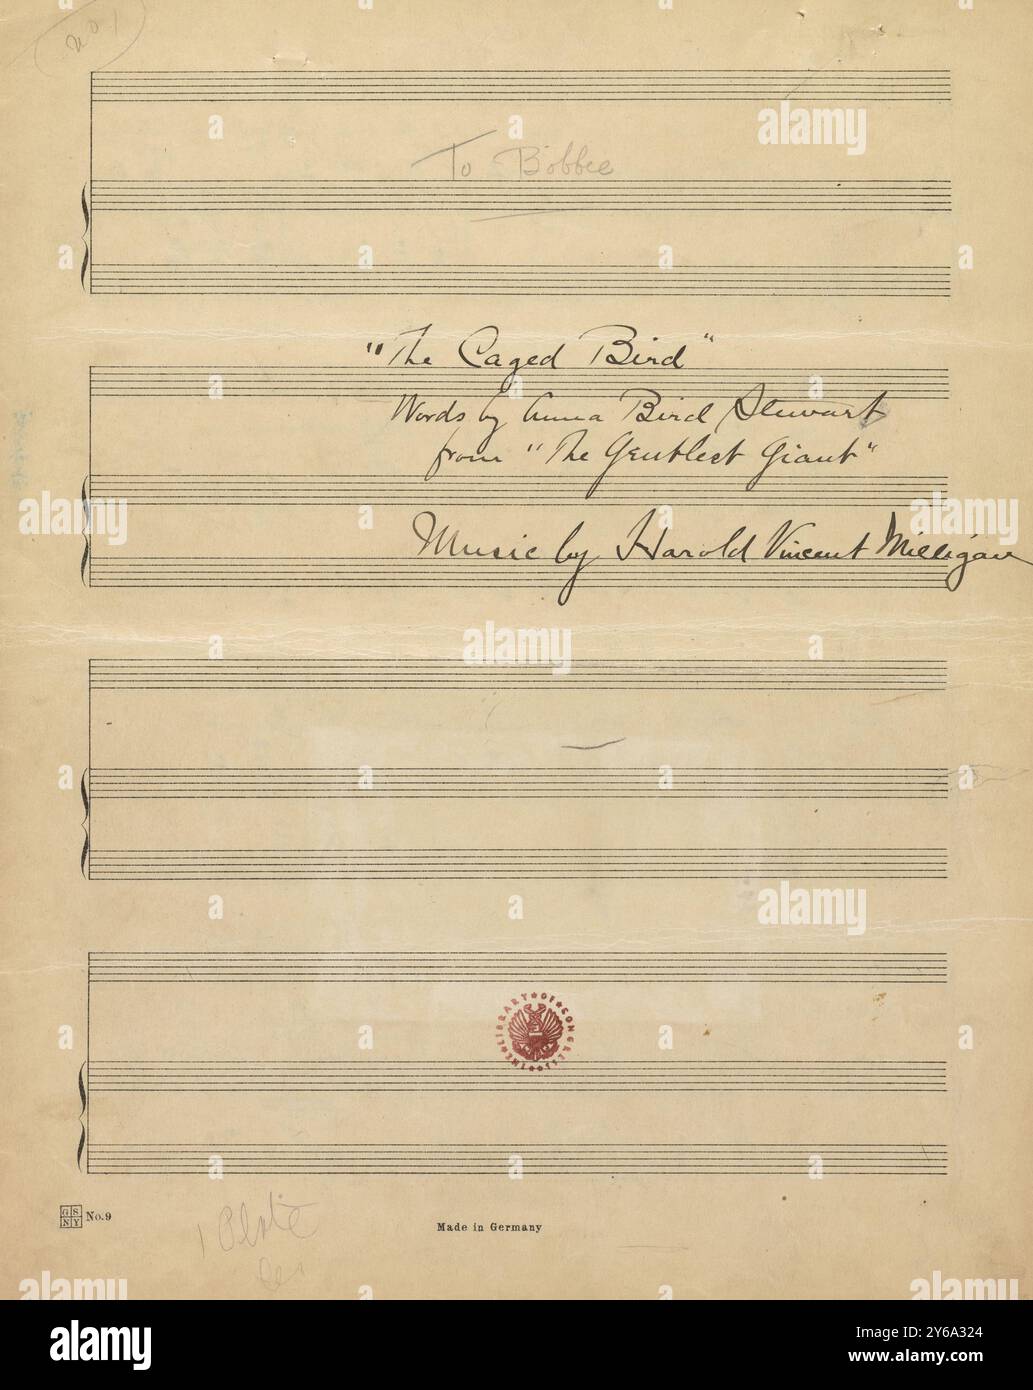 No 1
To Bobbee
"The Caged Bird"
Words by Anna Bird Stewart
from "The Gentlest Giant"
Music by Harold Vincent Milligan
THE LIBRARY OF CONGRESS
GS
NY
No. 9
1 Plate
Made in Germany
alamy
Image ID: 2Y6A324
www.alamy.com